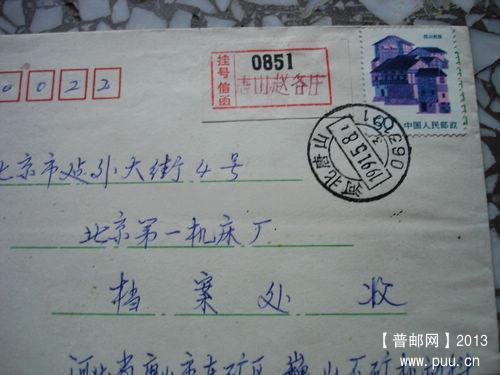 挂号信函
0851
唐山赵各庄
四川民居
中国人民邮政
0022
河北唐山市
1991.5.8.
北京市建外大街4号
北京第一机床厂
档案处 收
河北省唐山市东矿区
【普邮网】2013
www.puu.cn